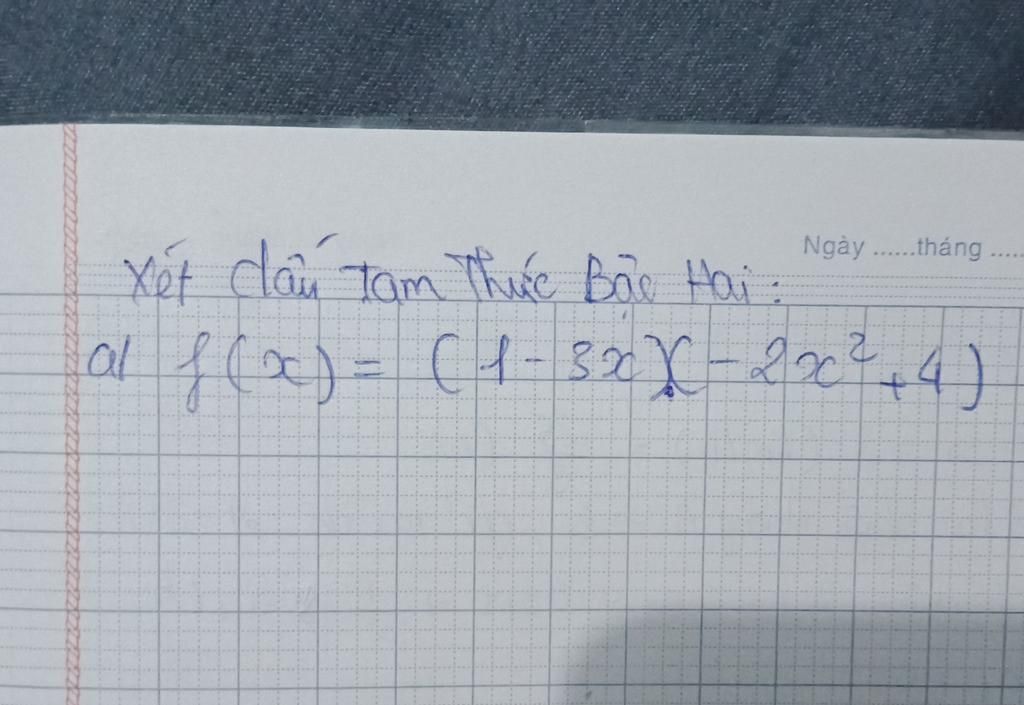 Ngày ......tháng .....
Xét dấu Tam Thức Bậc Hai:
a/ f(x) = (1 - 3x)(-2x² + 4)